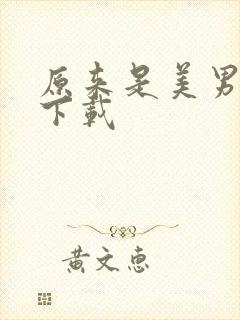 原来是美男
下载
黄文惠